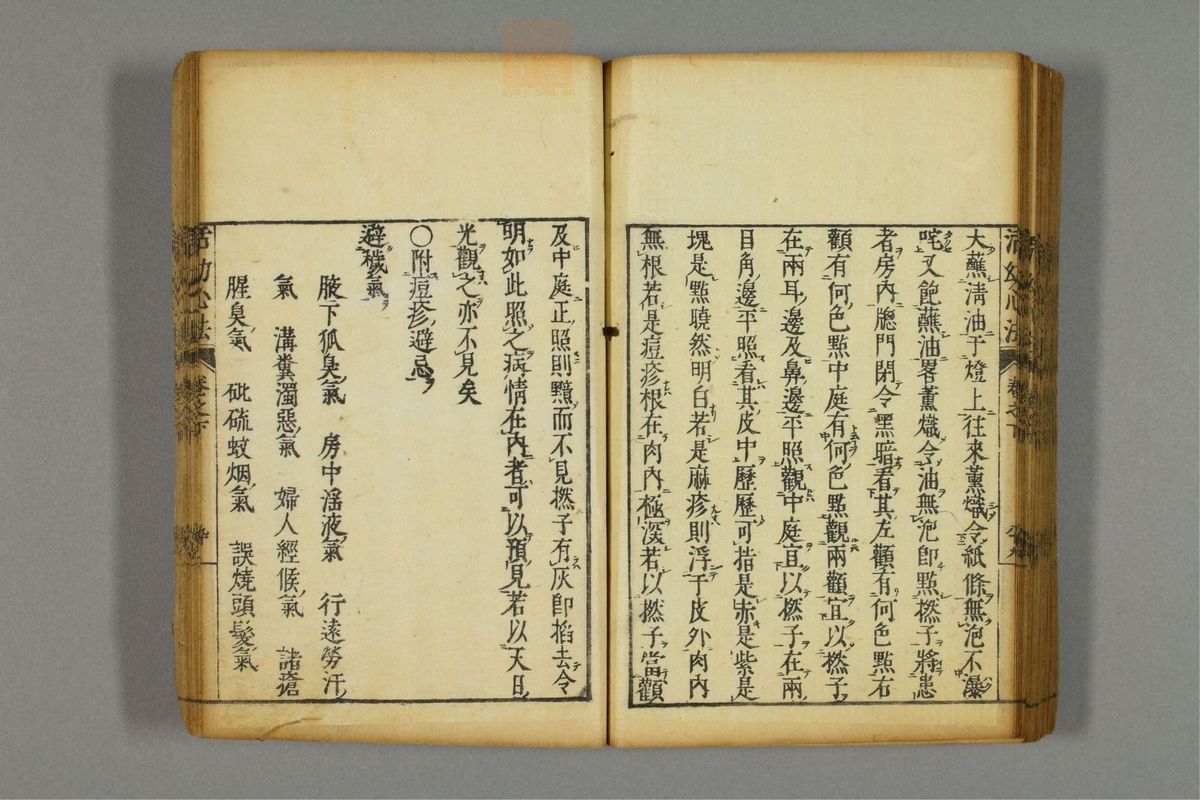 大蘸淸油于燈上往來薰熾令紙條無泡不瀑
咤又飽蘸油畧薰熾令油無泡卽點撚子將患
者房內牕門閉令黑暗看其左顴有何色點右
顴有何色點中庭有何色點觀兩顴宜以撚子
在兩耳邊及鼻邊平照觀中庭宜以撚子在兩
目角邊平照看其皮中歷歷可指是赤是紫是
塊是點曉然明白若是麻疹則浮于皮外肉內
無根若是痘疹根在肉內極深若以撚子當顴
及中庭正照則黯而不見撚子有灰卽掐去令
明如此照之病情在內者可以預見若以天日
光觀之亦不見矣
〇附痘疹避忌
避穢氣
腋下狐臭氣 房中淫液氣 行遠勞汗
氣 溝糞濁惡氣 婦人經候氣 諸瘡
腥臭氣 砒硫蚊烟氣 誤燒頭髮氣
活幼心法